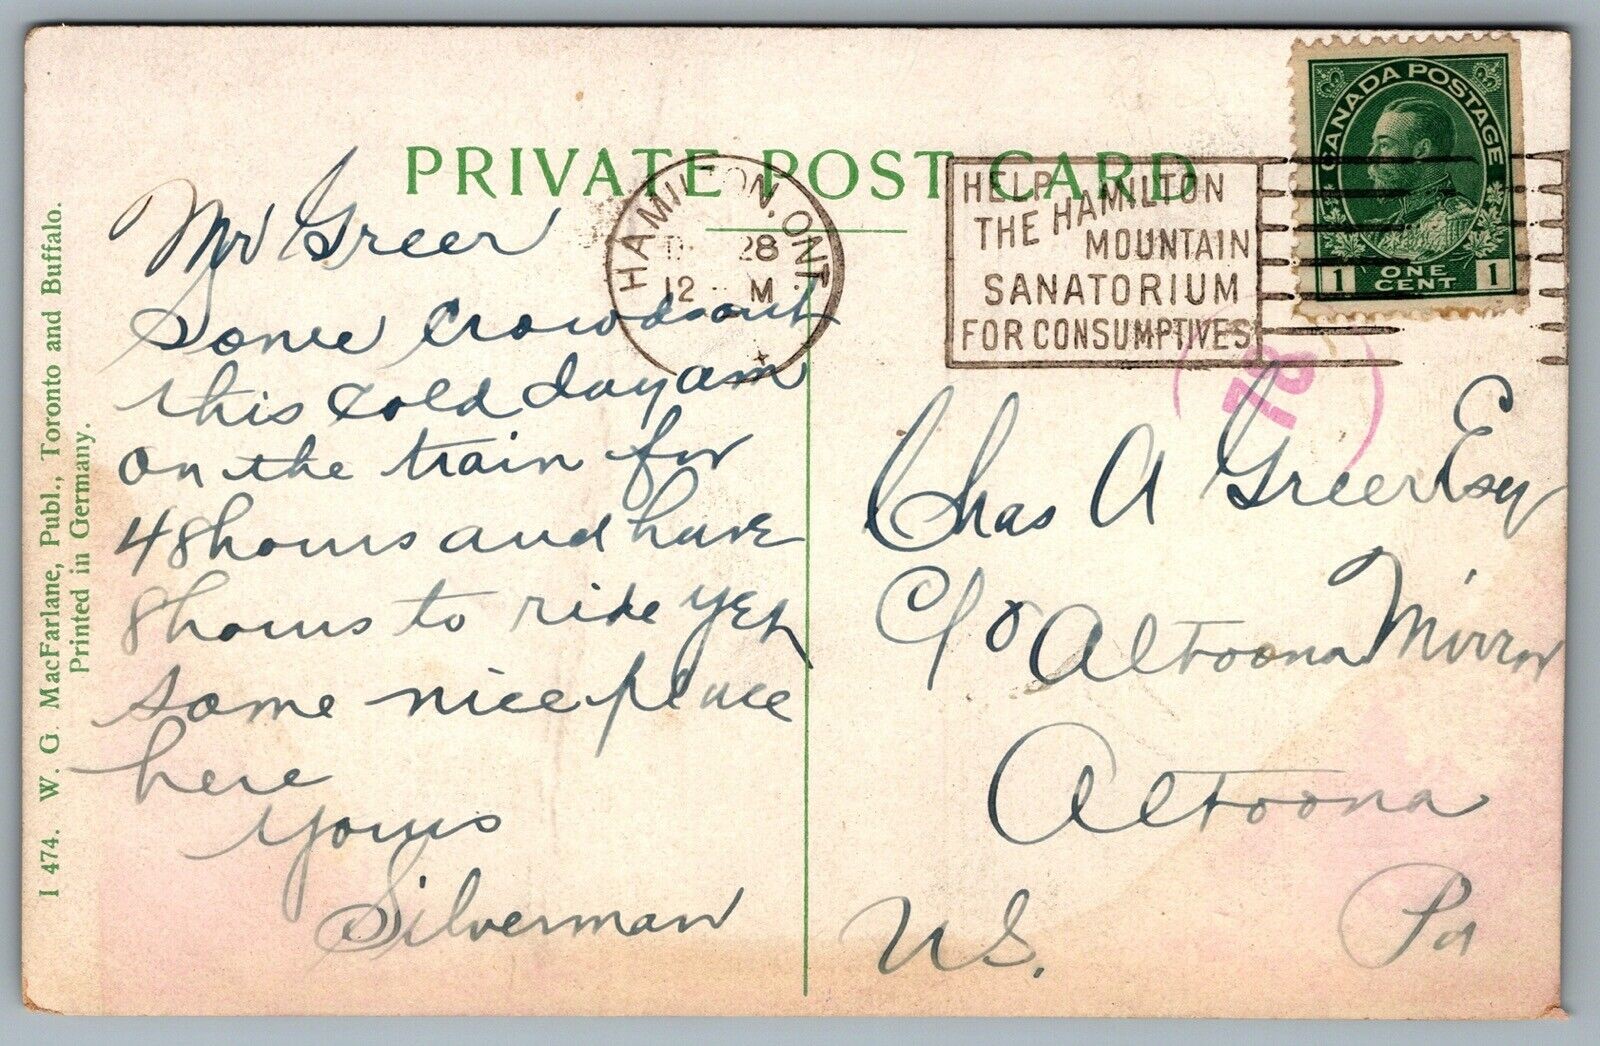 PRIVATE POST CARD
HAMILTON, ONT.
28
12 M
HELP
THE HAMILTON
MOUNTAIN
SANATORIUM
FOR CONSUMPTIVES
CANADA POSTAGE
1 ONE CENT 1
78
Mr Greer
Some crowds out
this cold day am
on the train for
48 hours and have
8 hours to ride yet
some nice place
here
Yours
Silverman
Chas A Greer Esq
C/o Altoona Mirror
Altoona
Pa
U.S.
I 474. W. G. MacFarlane, Publ., Toronto and Buffalo.
Printed in Germany.